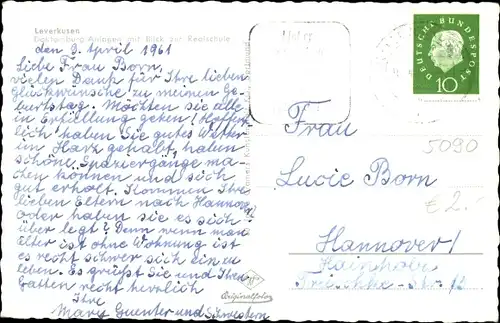 Leverkusen
Dhünnberg-Anlagen mit Blick zur Realschule
den 9. April 1961
Liebe Frau Born,
vielen Dank für Ihre lieben
Glückwünsche zu meinem Ge-
burtstag. Möchten sie alle
in Erfüllung gehen! Hoffent-
lich haben Sie gutes Wetter
im Harz gehabt, haben
schöne Spaziergänge ma-
chen können und sich
gut erholt. Kommen Ihre
lieben Eltern nach Hannover,
oder haben sie es sich
über legt? Denn wenn man
älter ist ohne Wohnung ist
es recht schwer sich ein zu
leben. Es grüßt Sie und Ihren
Gatten recht herzlich
Ihre
Mary Guenter und Schwestern
Originalfoto
DEUTSCHE BUNDESPOST
10
Frau
Lucie Born
Hannover/
5090
€ 2.-